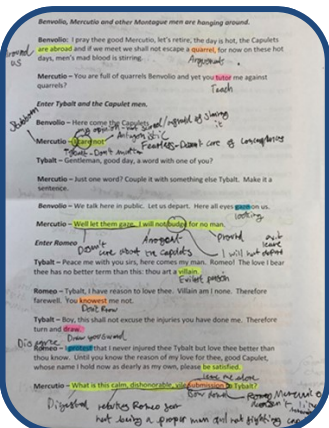 Benvolio, Mercutio and other Montague men are hanging around.
Benvolio: I pray thee good Mercutio, let's retire, the day is hot, the Capulets
around us
are abroad and if we meet we shall not escape a quarrel, for now on these
hot days, men's mad blood is stirring.
Arguments
Mercutio – You are full of quarrels Benvolio and yet you tutor me against
quarrels?
Teach
Enter Tybalt and the Capulet men.
Stubborn
Benvolio – Here come the Capulets
opinion not scared
of
it
Mercutio – I care not
Antagonistic
Don't matter
Fearless - Doesn't care of consequences
Tybalt – Gentleman, good day, a word with one of you?
Mercutio – Just one word? Couple it with something else Tybalt. Make it a
sentence.
Benvolio – We talk here in public. Let us depart. Here all eyes gaze on us.
looking
Mercutio – Well let them gaze. I will not budge for no man.
Enter Romeo
Doesn't care about the Capulets
Arrogant
Proud
leave
I will not depart
Tybalt – Peace be with you sirs, here comes my man. Romeo! The love I bear
thee has no better term than this: thou art a villain.
Evilest person
Romeo – Tybalt, I have reason to love thee. Villain am I none. Therefore
farewell. You knowest me not.
Don't know
Tybalt – Boy, this shall not excuse the injuries you have done me. Therefore
turn and draw.
Draw your sword
Disagree
Romeo – I protest that I never injured thee Tybalt but love thee better than
thou know. Until you know the reason of my love for thee, good Capulet,
whose name I hold now as dearly as my own, please be satisfied.
leave me alone
Mercutio – What is this calm, dishonorable, vile submission to Tybalt?
Bow down
Disgusted
Romeo
not being a proper man and not fighting